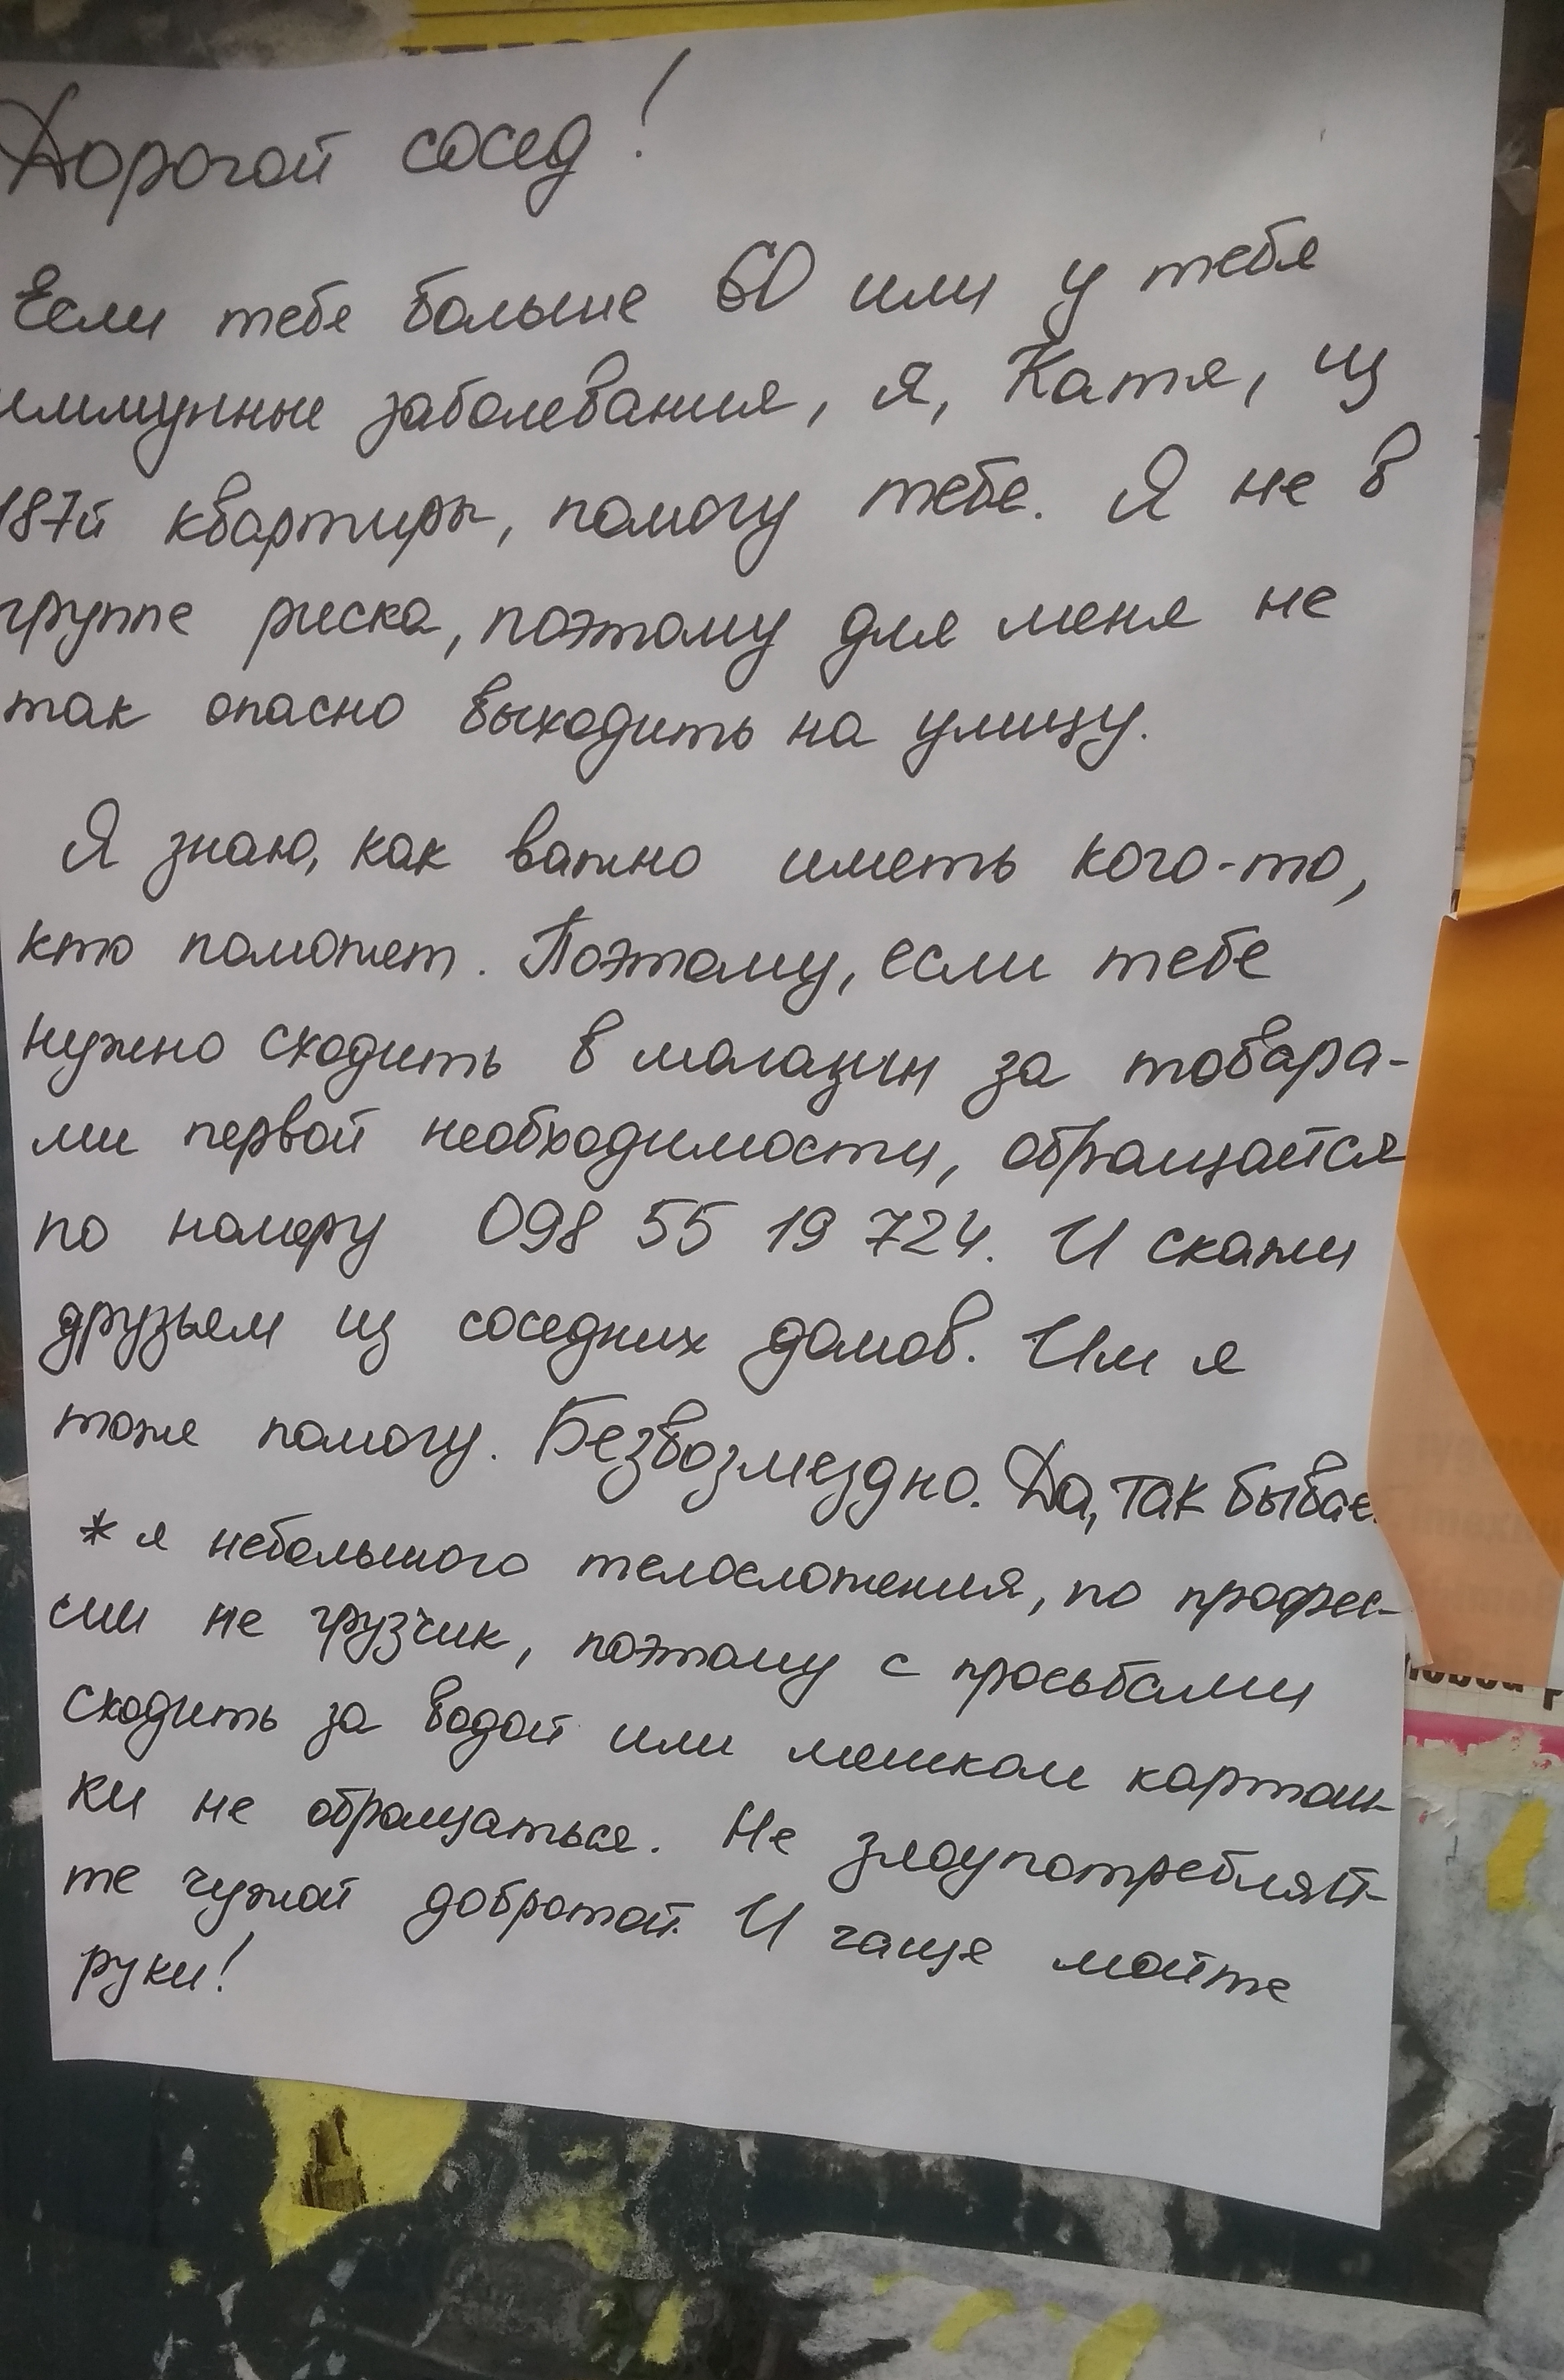 Дорогой сосед!
Если тебе больше 60 или у тебя
иммунные заболевания, я, Катя, из
187й квартиры, помогу тебе. Я не в
группе риска, поэтому для меня не
так опасно выходить на улицу.
Я знаю, как важно иметь кого-то,
кто поможет. Поэтому, если тебе
нужно сходить в магазин за товара-
ми первой необходимости, обращайся
по номеру 098 55 19 724. И скажи
друзьям из соседних домов. Им я
тоже помогу. Безвозмездно. Да, так бывае
* я небольшого телосложения, по профес-
сии не грузчик, поэтому с просьбами
сходить за водой или мешком картош-
ки не обращаться. Не злоупотребляй-
те чужой добротой. И чаще мойте
руки!